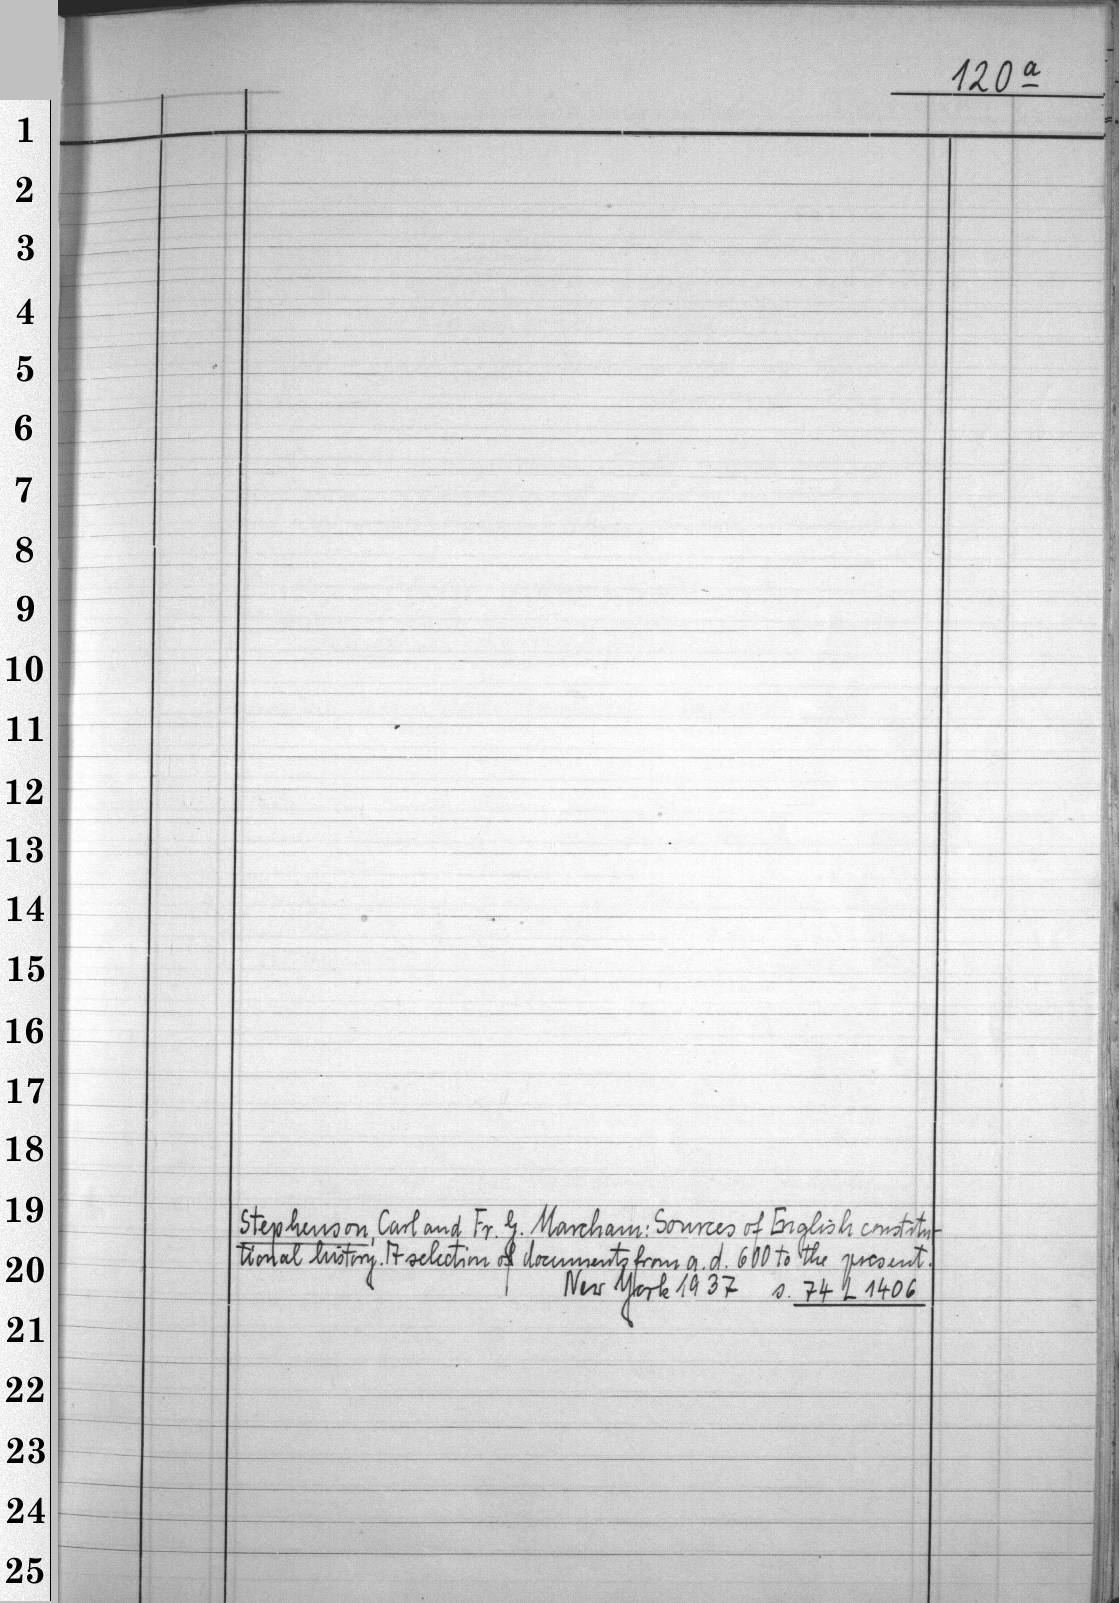 120 a
1
2
3
4
5
6
7
8
9
10
11
12
13
14
15
16
17
18
19
Stephenson, Carl and Fr. G. Marcham: Sources of English constitu-
tional history. A selection of documents from a. d. 600 to the present.
20
New York 1937 s. 74 L 1406
21
22
23
24
25